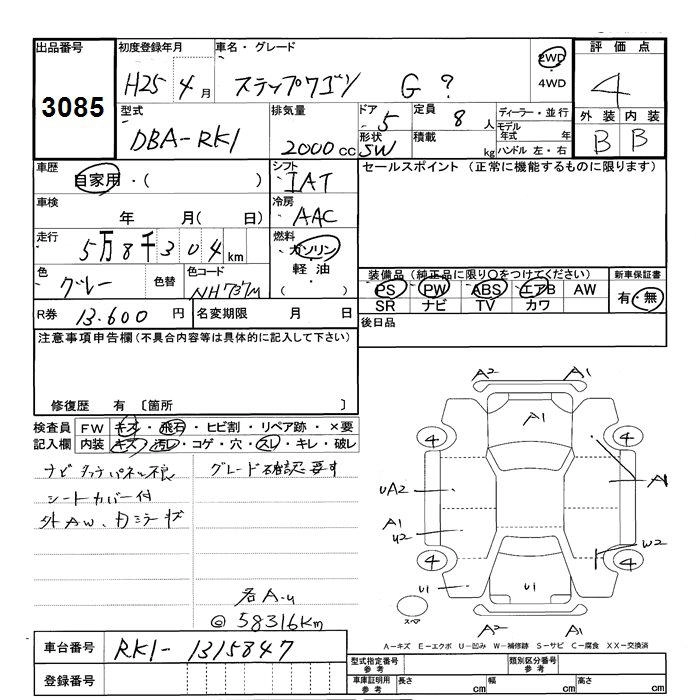 出品番号 初度登録年月 車名・グレード 2WD 評価点
3085 H25 4月 ステップワゴン G ? 4WD 4
型式 排気量 ドア 5 定員 8人 ディーラー・並行 外装 内装
DBA-RK1 2000cc 形状 SW 積載 kg モデル年式 年 B B
ハンドル 左・右
車歴 シフト セールスポイント (正常に機能するものに限ります)
自家用・( ) IAT
車検 冷房
年 月( 日) AAC
走行 燃料
5万8千304km ガソリン
色 色替 色コード 軽油 装備品 (純正品に限り○をつけてください) 新車保証書
グレー NH737M ( ) PS PW ABS エアB AW 有・無
SR ナビ TV カワ
R券 13.600円 名変期限 月 日 後日品
注意事項申告欄(不具合内容等は具体的に記入して下さい)
修復歴 有 〔箇所 〕
検査員 FW キズ・飛石・ヒビ割・リペア跡・×要
記入欄 内装 キズ・汚レ・コゲ・穴・スレ・キレ・破レ
ナビタッチパネル不良 グレード確認要す
シートカバー付
外AW、
各A.u
@58316km
A2 A1
A1
4 4
UA2 A1
A1
U2 W2
4 4
U1 U1
スペア
A2 A1
A-キズ E-エクボ U-凹み W-補修跡 S-サビ C-腐食 XX-交換済
車台番号 RK1-1315847
登録番号
型式指定番号 参考 類別区分番号 参考
車庫証明用 参考 長さ cm 幅 cm 高さ cm